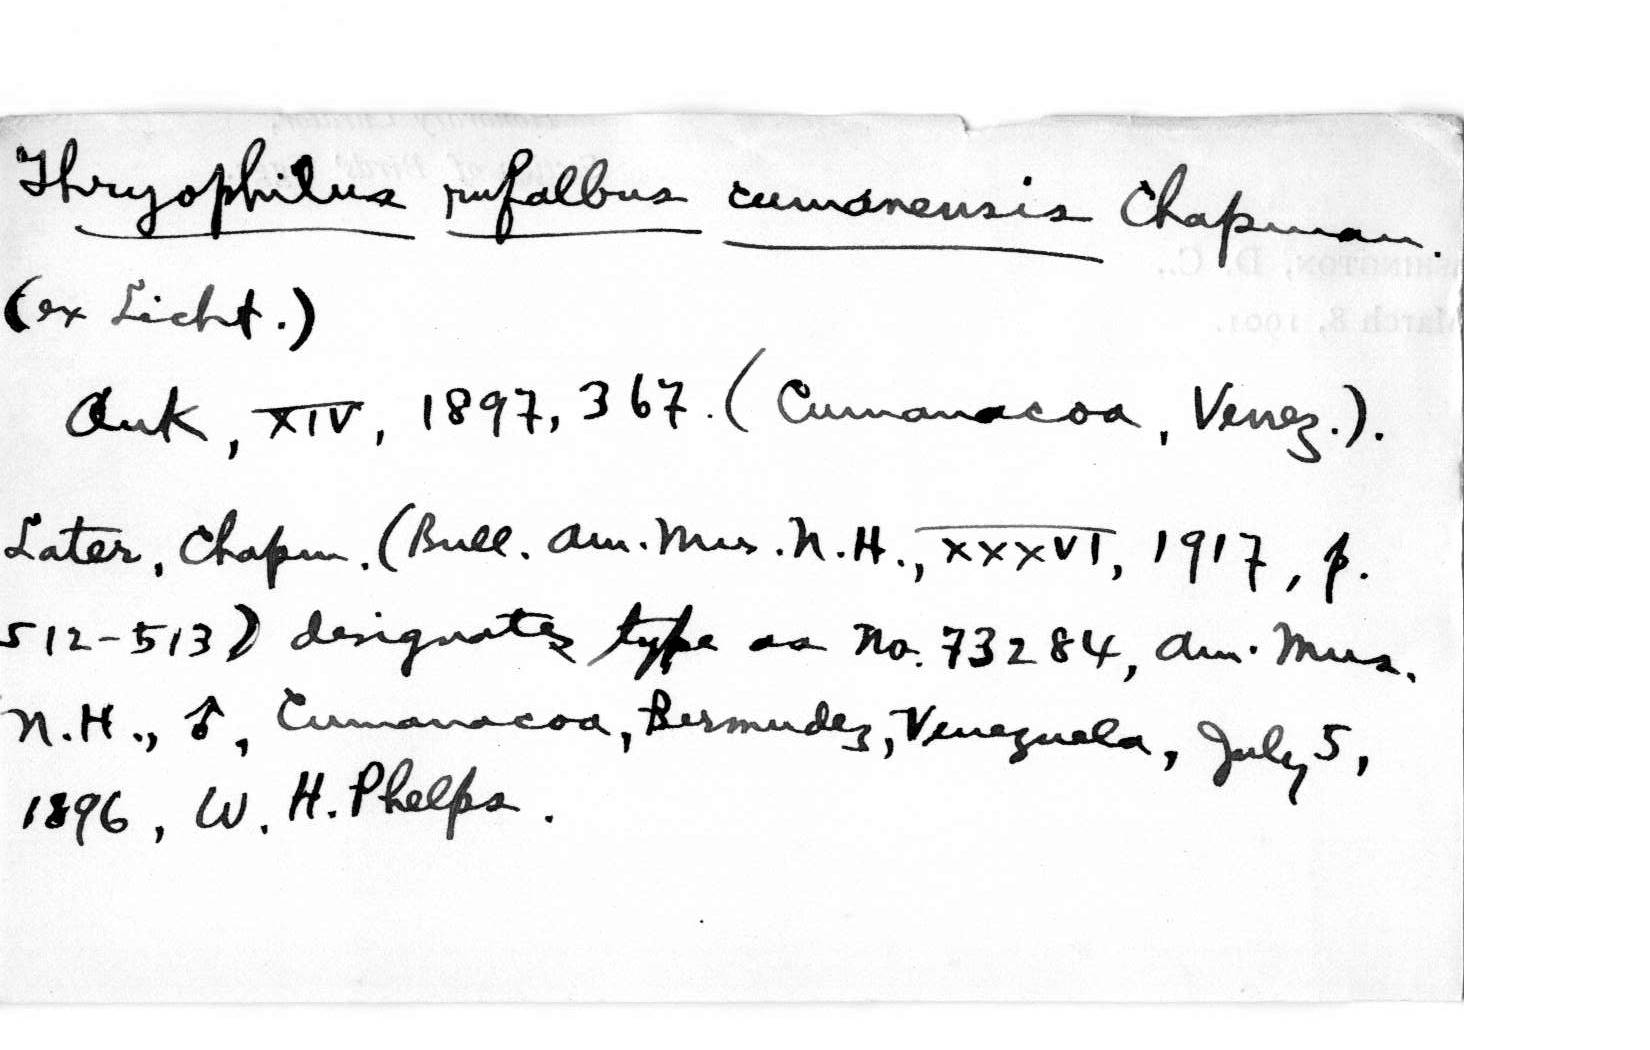 Thryophilus rufalbus cumanensis Chapman.
(ex Licht.)
Auk, XIV, 1897, 367. (Cumanacoa, Venez.).
Later, Chapm. (Bull. Am. Mus. N.H., XXXVI, 1917, p.
512-513) designates type as No. 73284, Am. Mus.
N.H., ♂, Cumanacoa, Bermudez, Venezuela, July 5,
1896, W. H. Phelps.